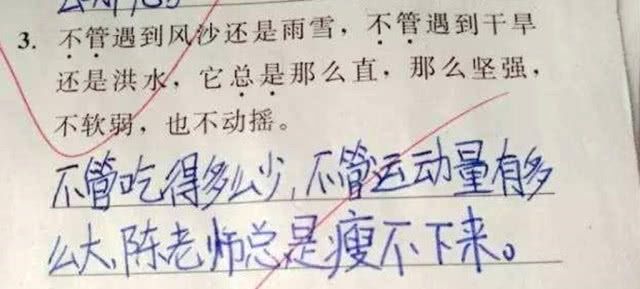 3. 不管遇到风沙还是雨雪，不管遇到干旱
还是洪水，它总是那么直，那么坚强，
不软弱，也不动摇。
不管吃得多么少，不管运动量有多
么大，陈老师总是瘦不下来。